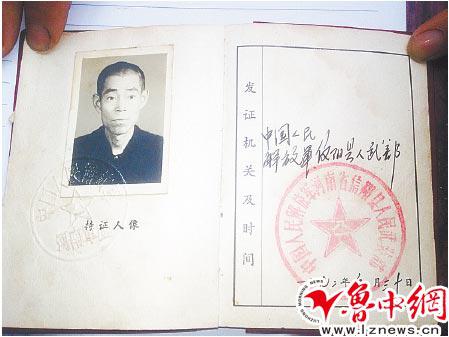 持证人像
发证机关及时间
中国人民
解放军信阳县人武部
中国人民解放军河南省信阳县人民武装部
年 月三十日
鲁中網
www.lznews.cn